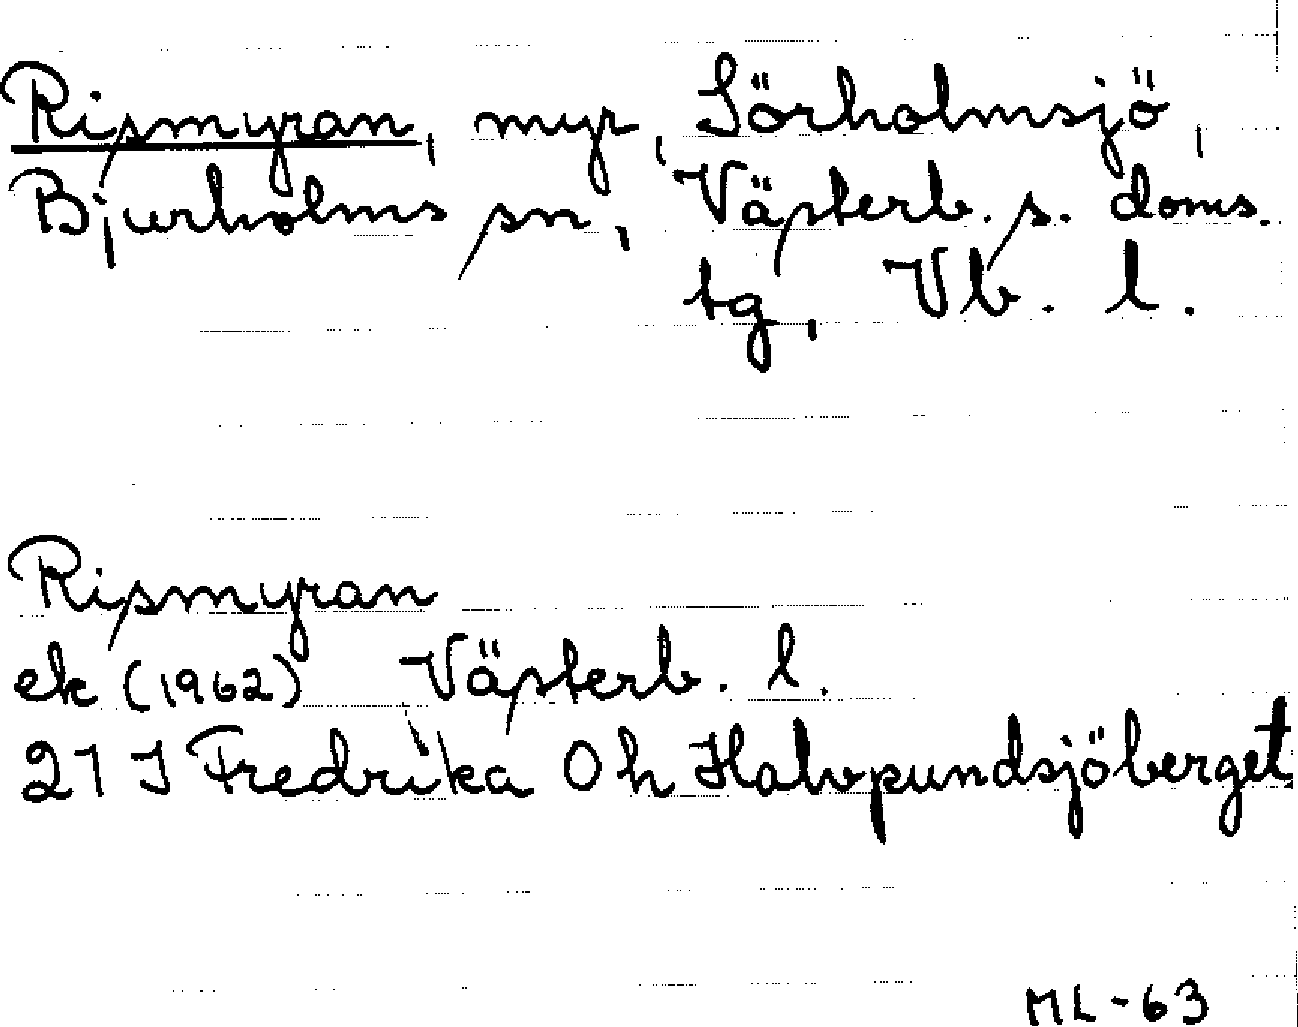 Rismyran, myr, Sörholmsjö,
Bjurholms sn, Västerb. s. doms.
tg, Vb. l.
Rismyran
ek (1962) Västerb. l.
21 J Fredrika 0 h Halvpundsjöberget.
ML-63